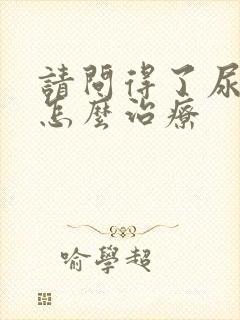 請問得了尿
怎麼治療
喻學超